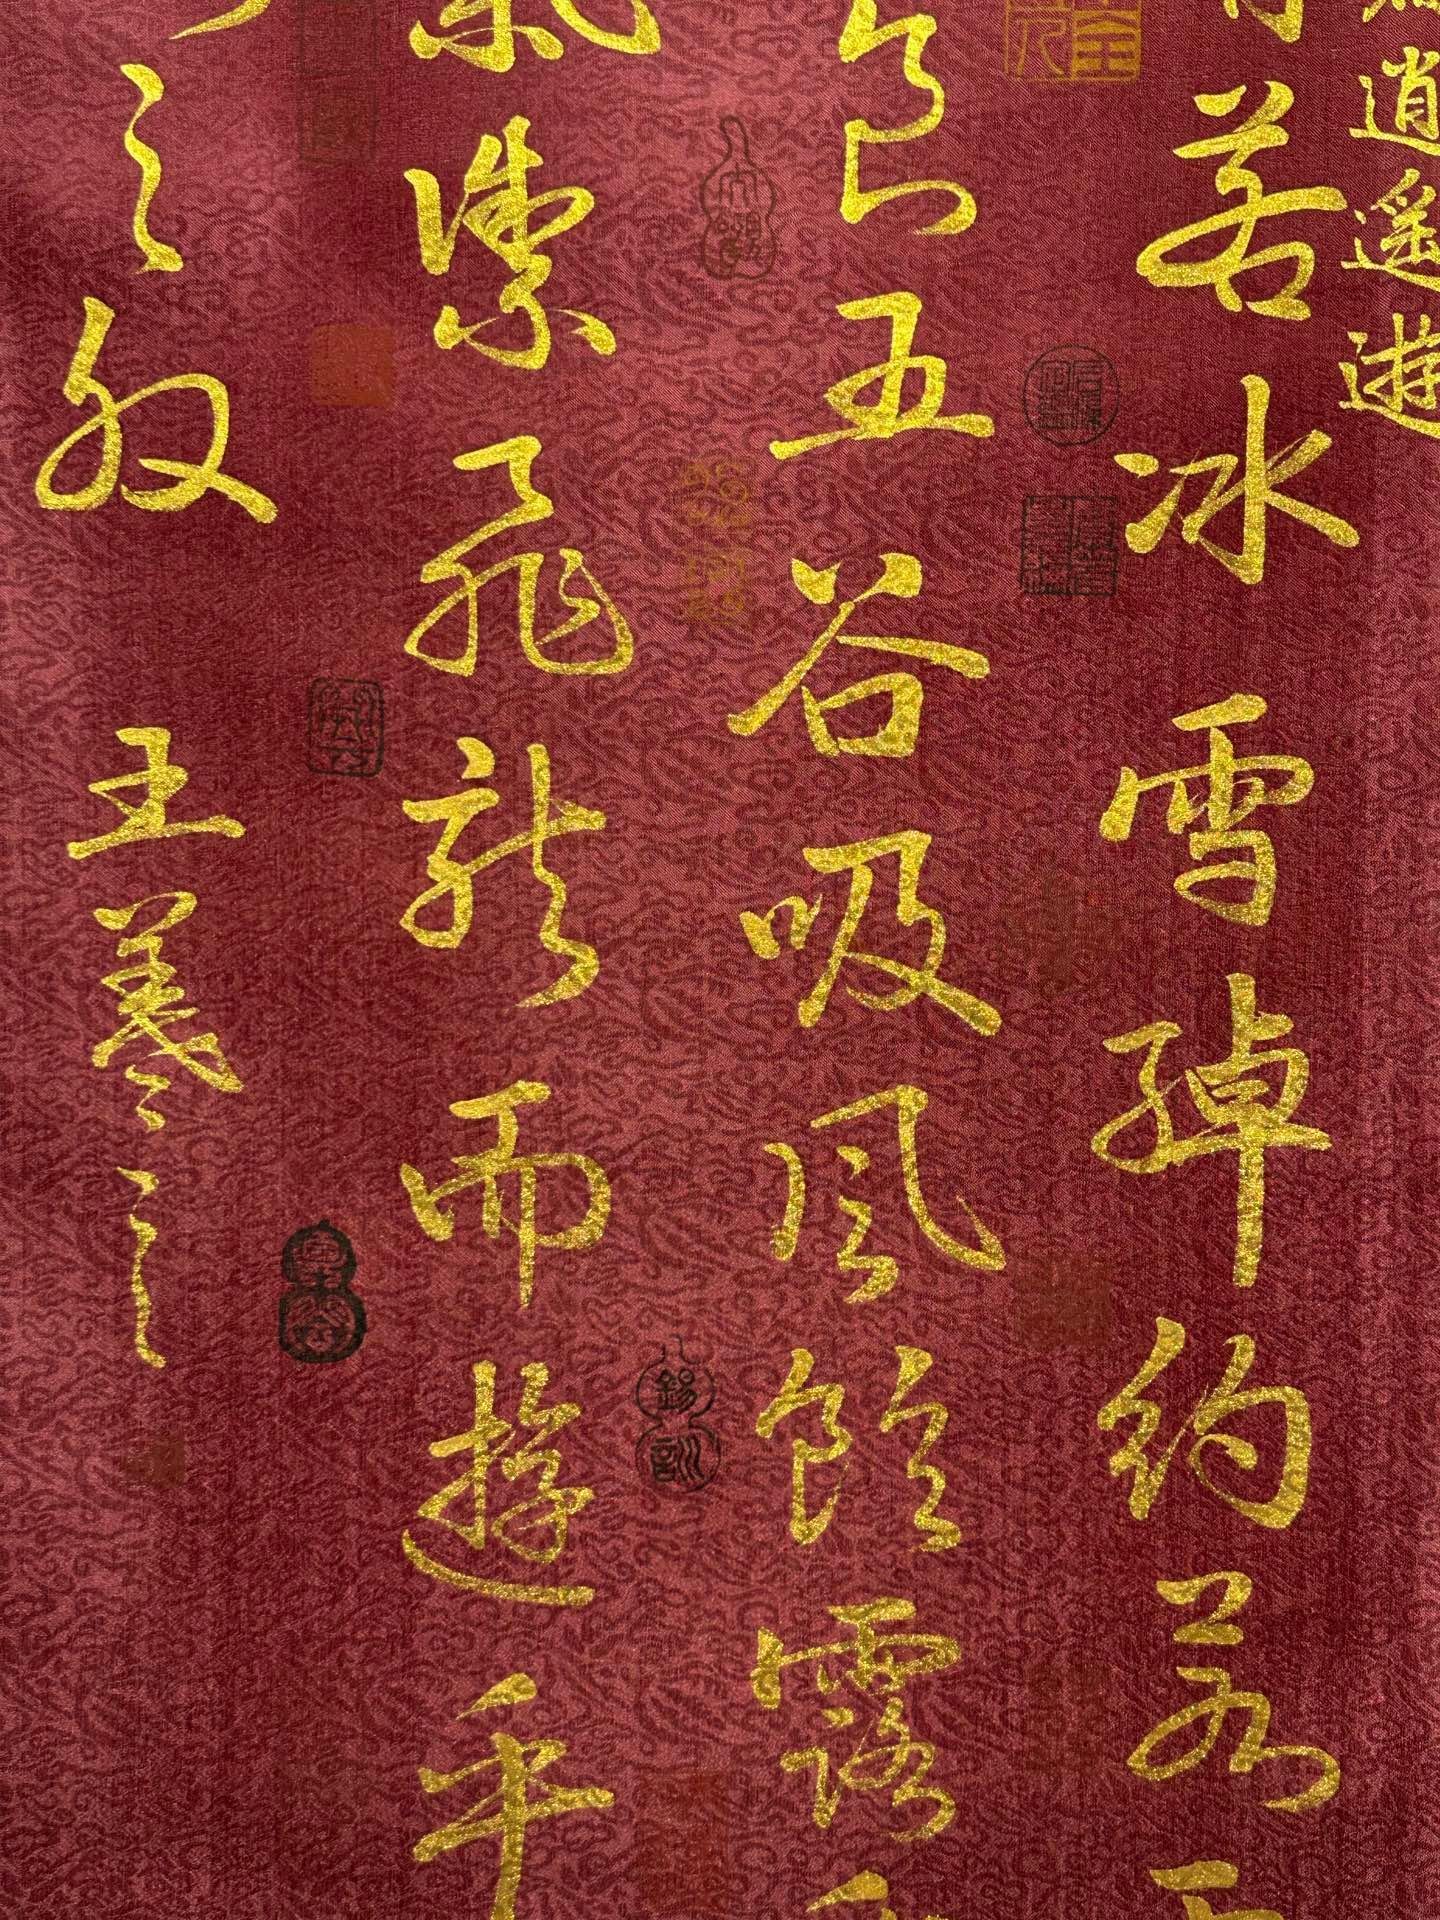 逍遥遊
若冰雪綽約若
食五谷吸風飲露
氣御飛龍而遊乎
之外 王羲之